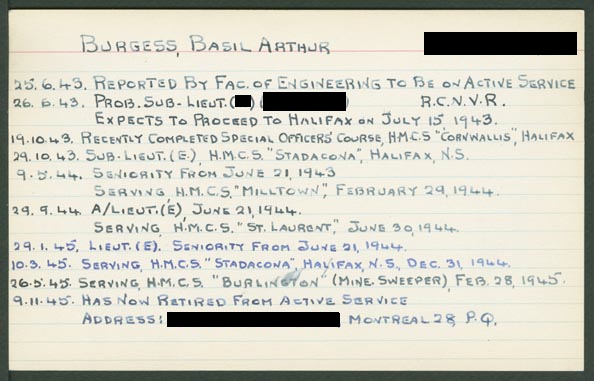 BURGESS, BASIL ARTHUR
25.6.43. REPORTED BY FAC. OF ENGINEERING TO BE ON ACTIVE SERVICE
26.6.43. PROB. SUB-LIEUT.( ) ( ) R.C.N.V.R.
EXPECTS TO PROCEED TO HALIFAX ON JULY 15 1943.
19.10.43. RECENTLY COMPLETED SPECIAL OFFICERS' COURSE, H.M.C.S "CORNWALLIS", HALIFAX
29.10.43. SUB-LIEUT.(E.), H.M.C.S. "STADACONA", HALIFAX, N.S.
9.5.44. SENIORITY FROM JUNE 21, 1943
SERVING, H.M.C.S. "MILLTOWN", FEBRUARY 29, 1944.
29.9.44. A/LIEUT.(E), JUNE 21, 1944.
SERVING, H.M.C.S. "ST. LAURENT," JUNE 30, 1944.
29.1.45. LIEUT.(E). SENIORITY FROM JUNE 21, 1944.
10.3.45. SERVING, H.M.C.S. "STADACONA", HALIFAX, N.S., DEC. 31, 1944.
26.5.45. SERVING, H.M.C.S. "BURLINGTON" (MINE. SWEEPER), FEB. 28, 1945.
9.11.45. HAS NOW RETIRED FROM ACTIVE SERVICE
ADDRESS: MONTREAL 28, P.Q.